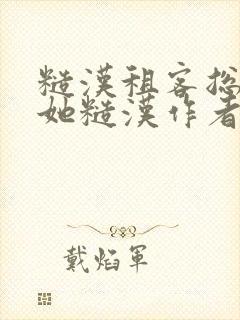 糙漢租客总
她糙漢作者
戴焰軍